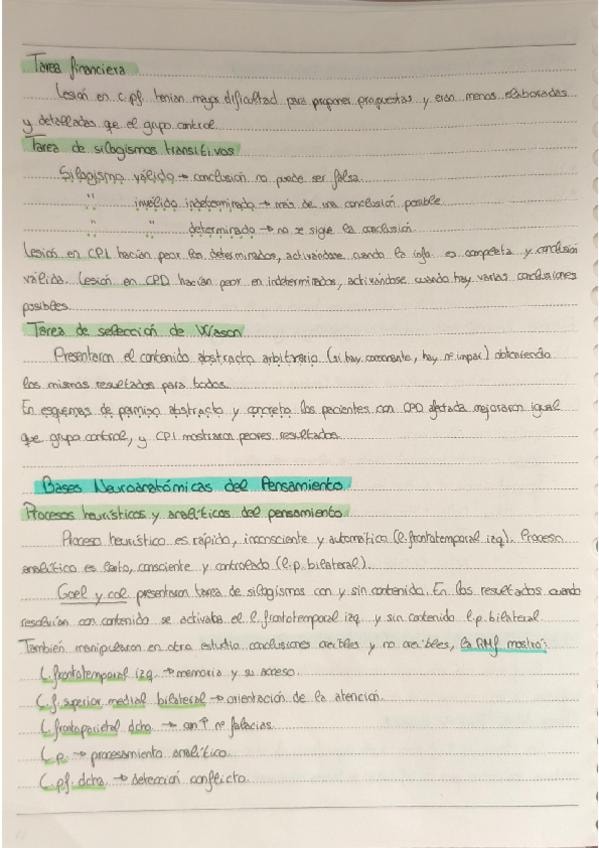 Tarea financiera
Lesión en c.pf. tenían mayor dificultad para proponer propuestas y eran menos elaboradas
y detalladas que el grupo control.
Tarea de silogismos transitivos
Silogismo válido → conclusión no puede ser falsa.
" inválido indeterminado → más de una conclusión posible.
" " determinado → no se sigue la conclusión.
Lesión en CPI hacían peor los determinados, activándose cuando la info. es completa y conclusión
válida. Lesión en CPD hacían peor en indeterminados, activándose cuando hay varias conclusiones
posibles.
Tarea de selección de Wason
Presentaron el contenido abstracto arbitrario (si hay consonante, hay nº impar) obteniendo
los mismos resultados para todos.
En esquemas de permiso abstracto y concreto los pacientes con CPD afectada mejoraron igual
que grupo control, y CPI mostraron peores resultados.
Bases Neuroanatómicas del Pensamiento
Procesos heurísticos y analíticos del pensamiento
Proceso heurístico es rápido, inconsciente y automático (l. frontotemporal izq). Proceso
analítico es lento, consciente y controlado (l. p. bilateral).
Goel y col. presentaron tarea de silogismos con y sin contenido. En los resultados cuando
resolvían con contenido se activaba el l. frontotemporal izq. y sin contenido l. p. bilateral.
También manipularon en otro estudio conclusiones creíbles y no creíbles, la RMf mostró:
C. frontotemporal izq. → memoria y su acceso.
C. f. superior medial bilateral → orientación de la atención.
C. frontoparietal dcho → con ↑ nº falacias.
C. p. → procesamiento analítico.
C. pf. dcho → detección conflicto.